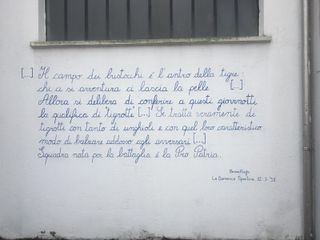 [...] Il campo dei bustocchi è l'antro della tigre:
chi ci si avventura ci lascia la pelle [...]
Allora si delibera di conferire a questi giovinotti,
la qualifica di "tigrotti" [...] Si tratta veramente di
tigrotti con tanto di unghioli e con quel loro caratteristico
modo di balzare addosso agli avversari [...]
Squadra nota per la battaglia è la Pro Patria.
La Domenica Sportiva